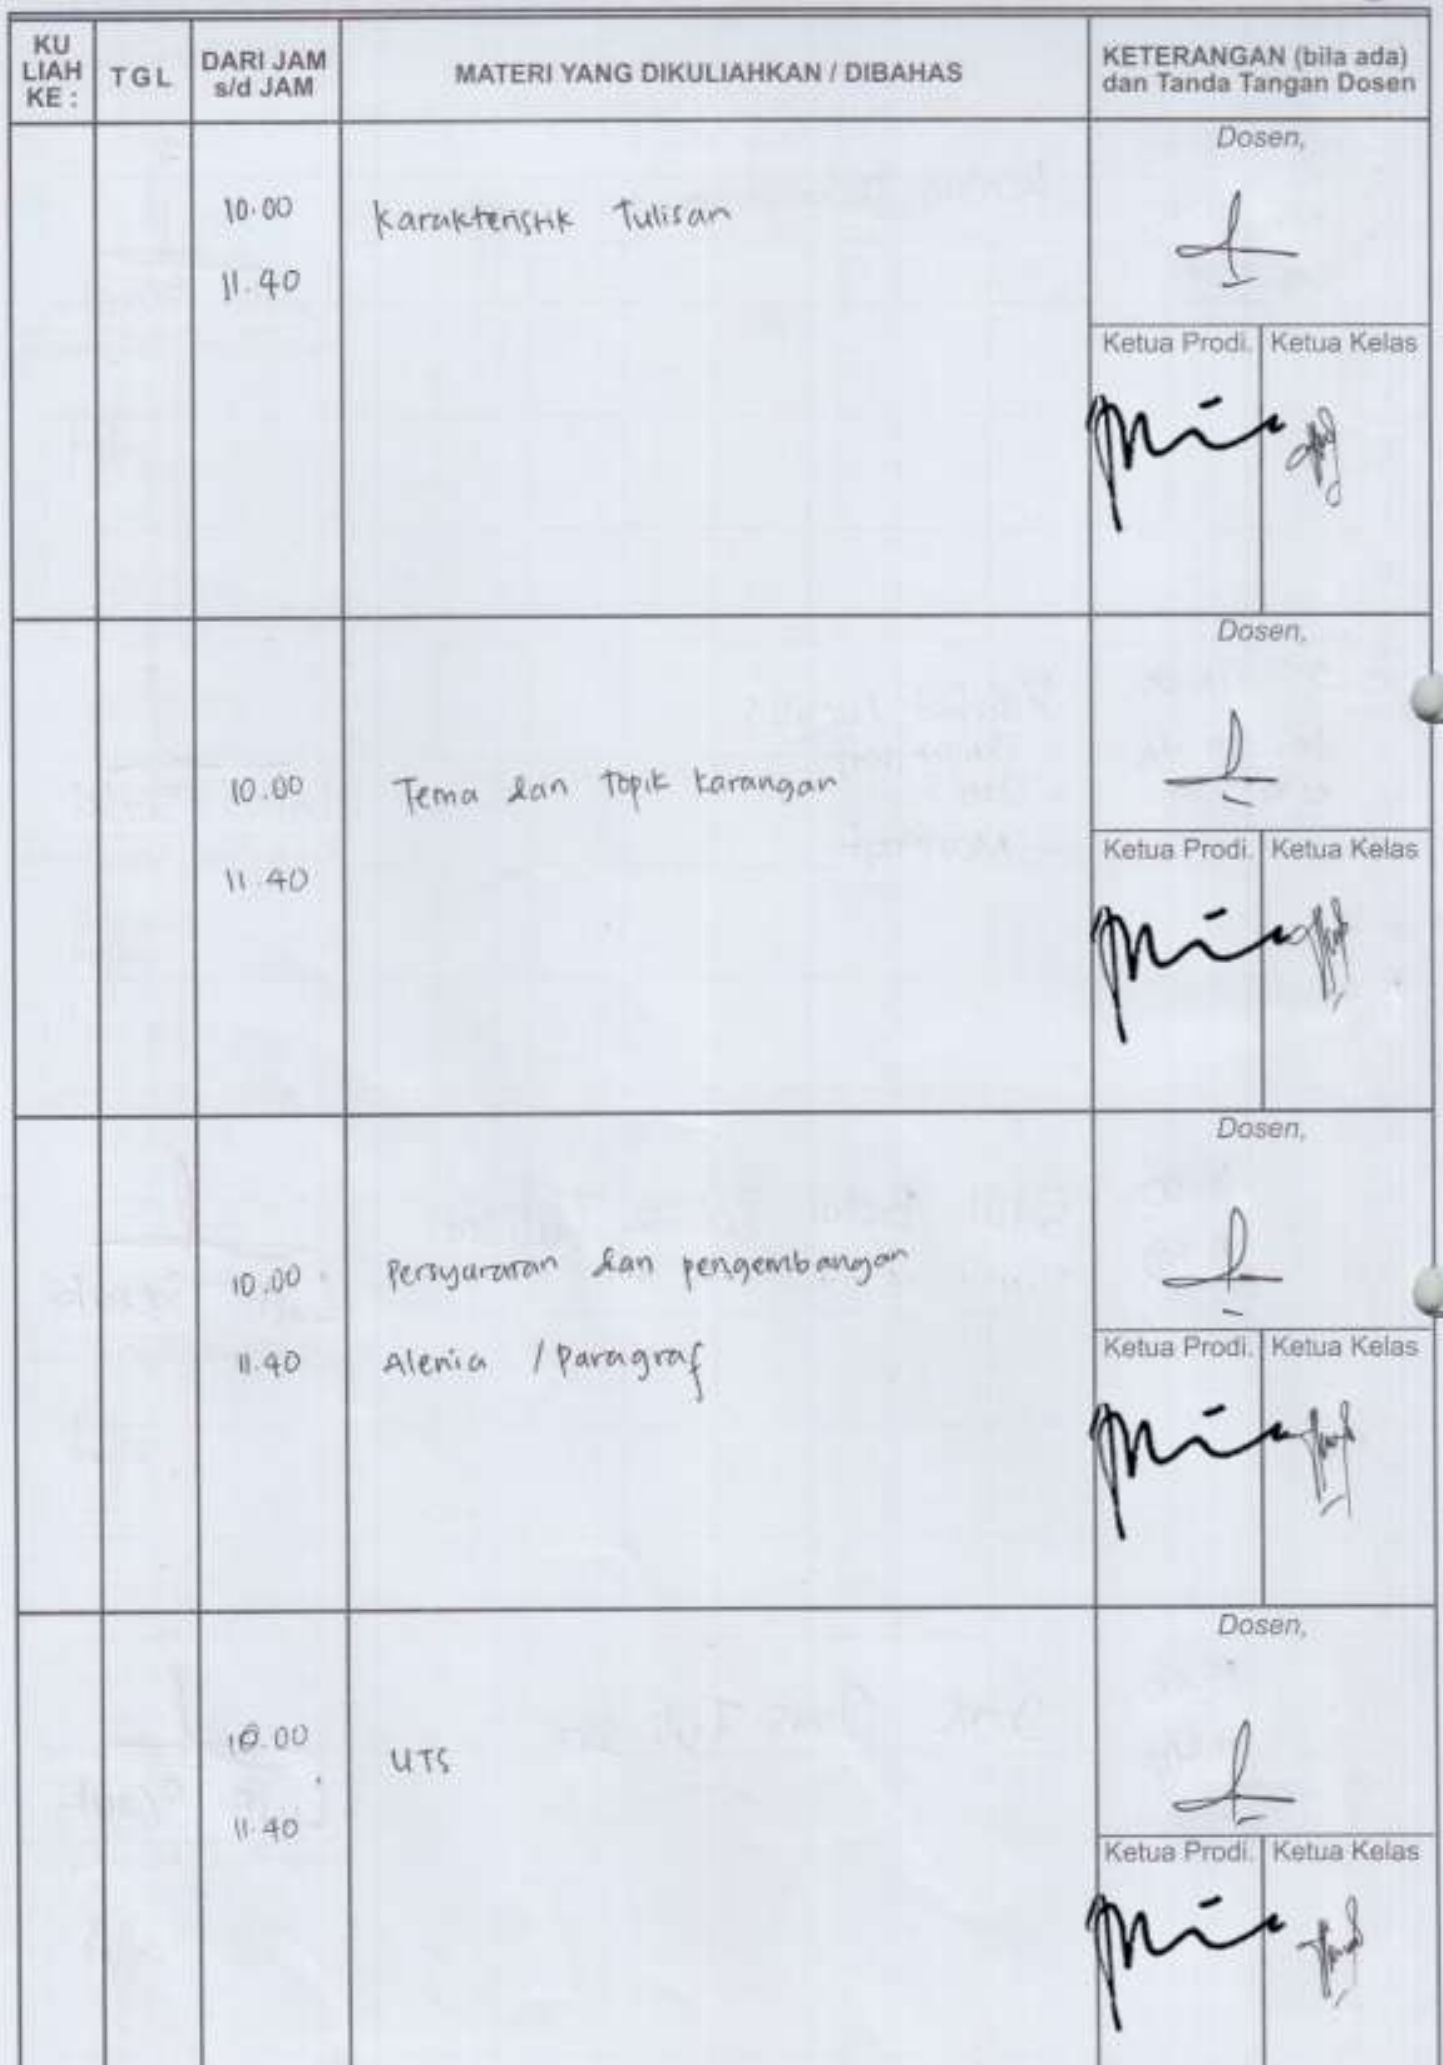 KU LIAH KE : TGL DARI JAM s/d JAM MATERI YANG DIKULIAHKAN / DIBAHAS KETERANGAN (bila ada) dan Tanda Tangan Dosen
Dosen,
10.00 Karakteristik Tulisan
11.40
Ketua Prodi. Ketua Kelas
Dosen,
10.00 Tema dan Topik Karangan
11.40
Ketua Prodi. Ketua Kelas
Dosen,
10.00 Persyararan dan pengembangan
11.40 Alenia / Paragraf
Ketua Prodi. Ketua Kelas
Dosen,
10.00 UTS
11.40
Ketua Prodi. Ketua Kelas